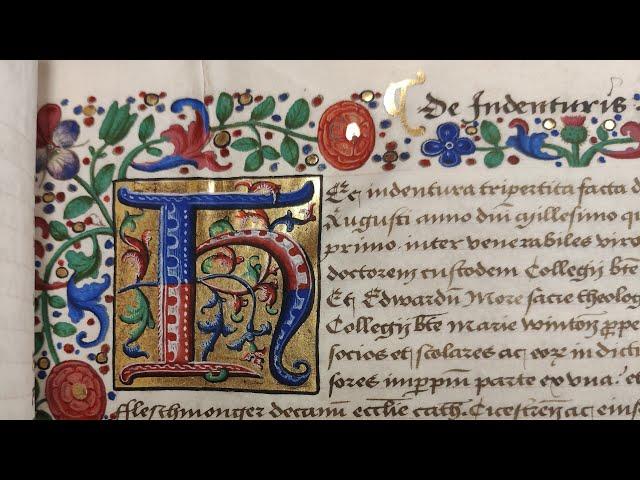 De Indenturis
Hec indentura tripertita facta d
Augusti anno dm̄ millesimo q
primo inter venerabiles viro
doctorem custodem Collegij bt̄e
Et Edwardū More sacre theolog
Collegij bt̄e marie winton̄ perp
socios et scolares ac eorꝝ in dict
sores imperp̄m parte ex vna. et
ffleschmonger decanū eccl̄ie cath. Cicestren̄ ac eius